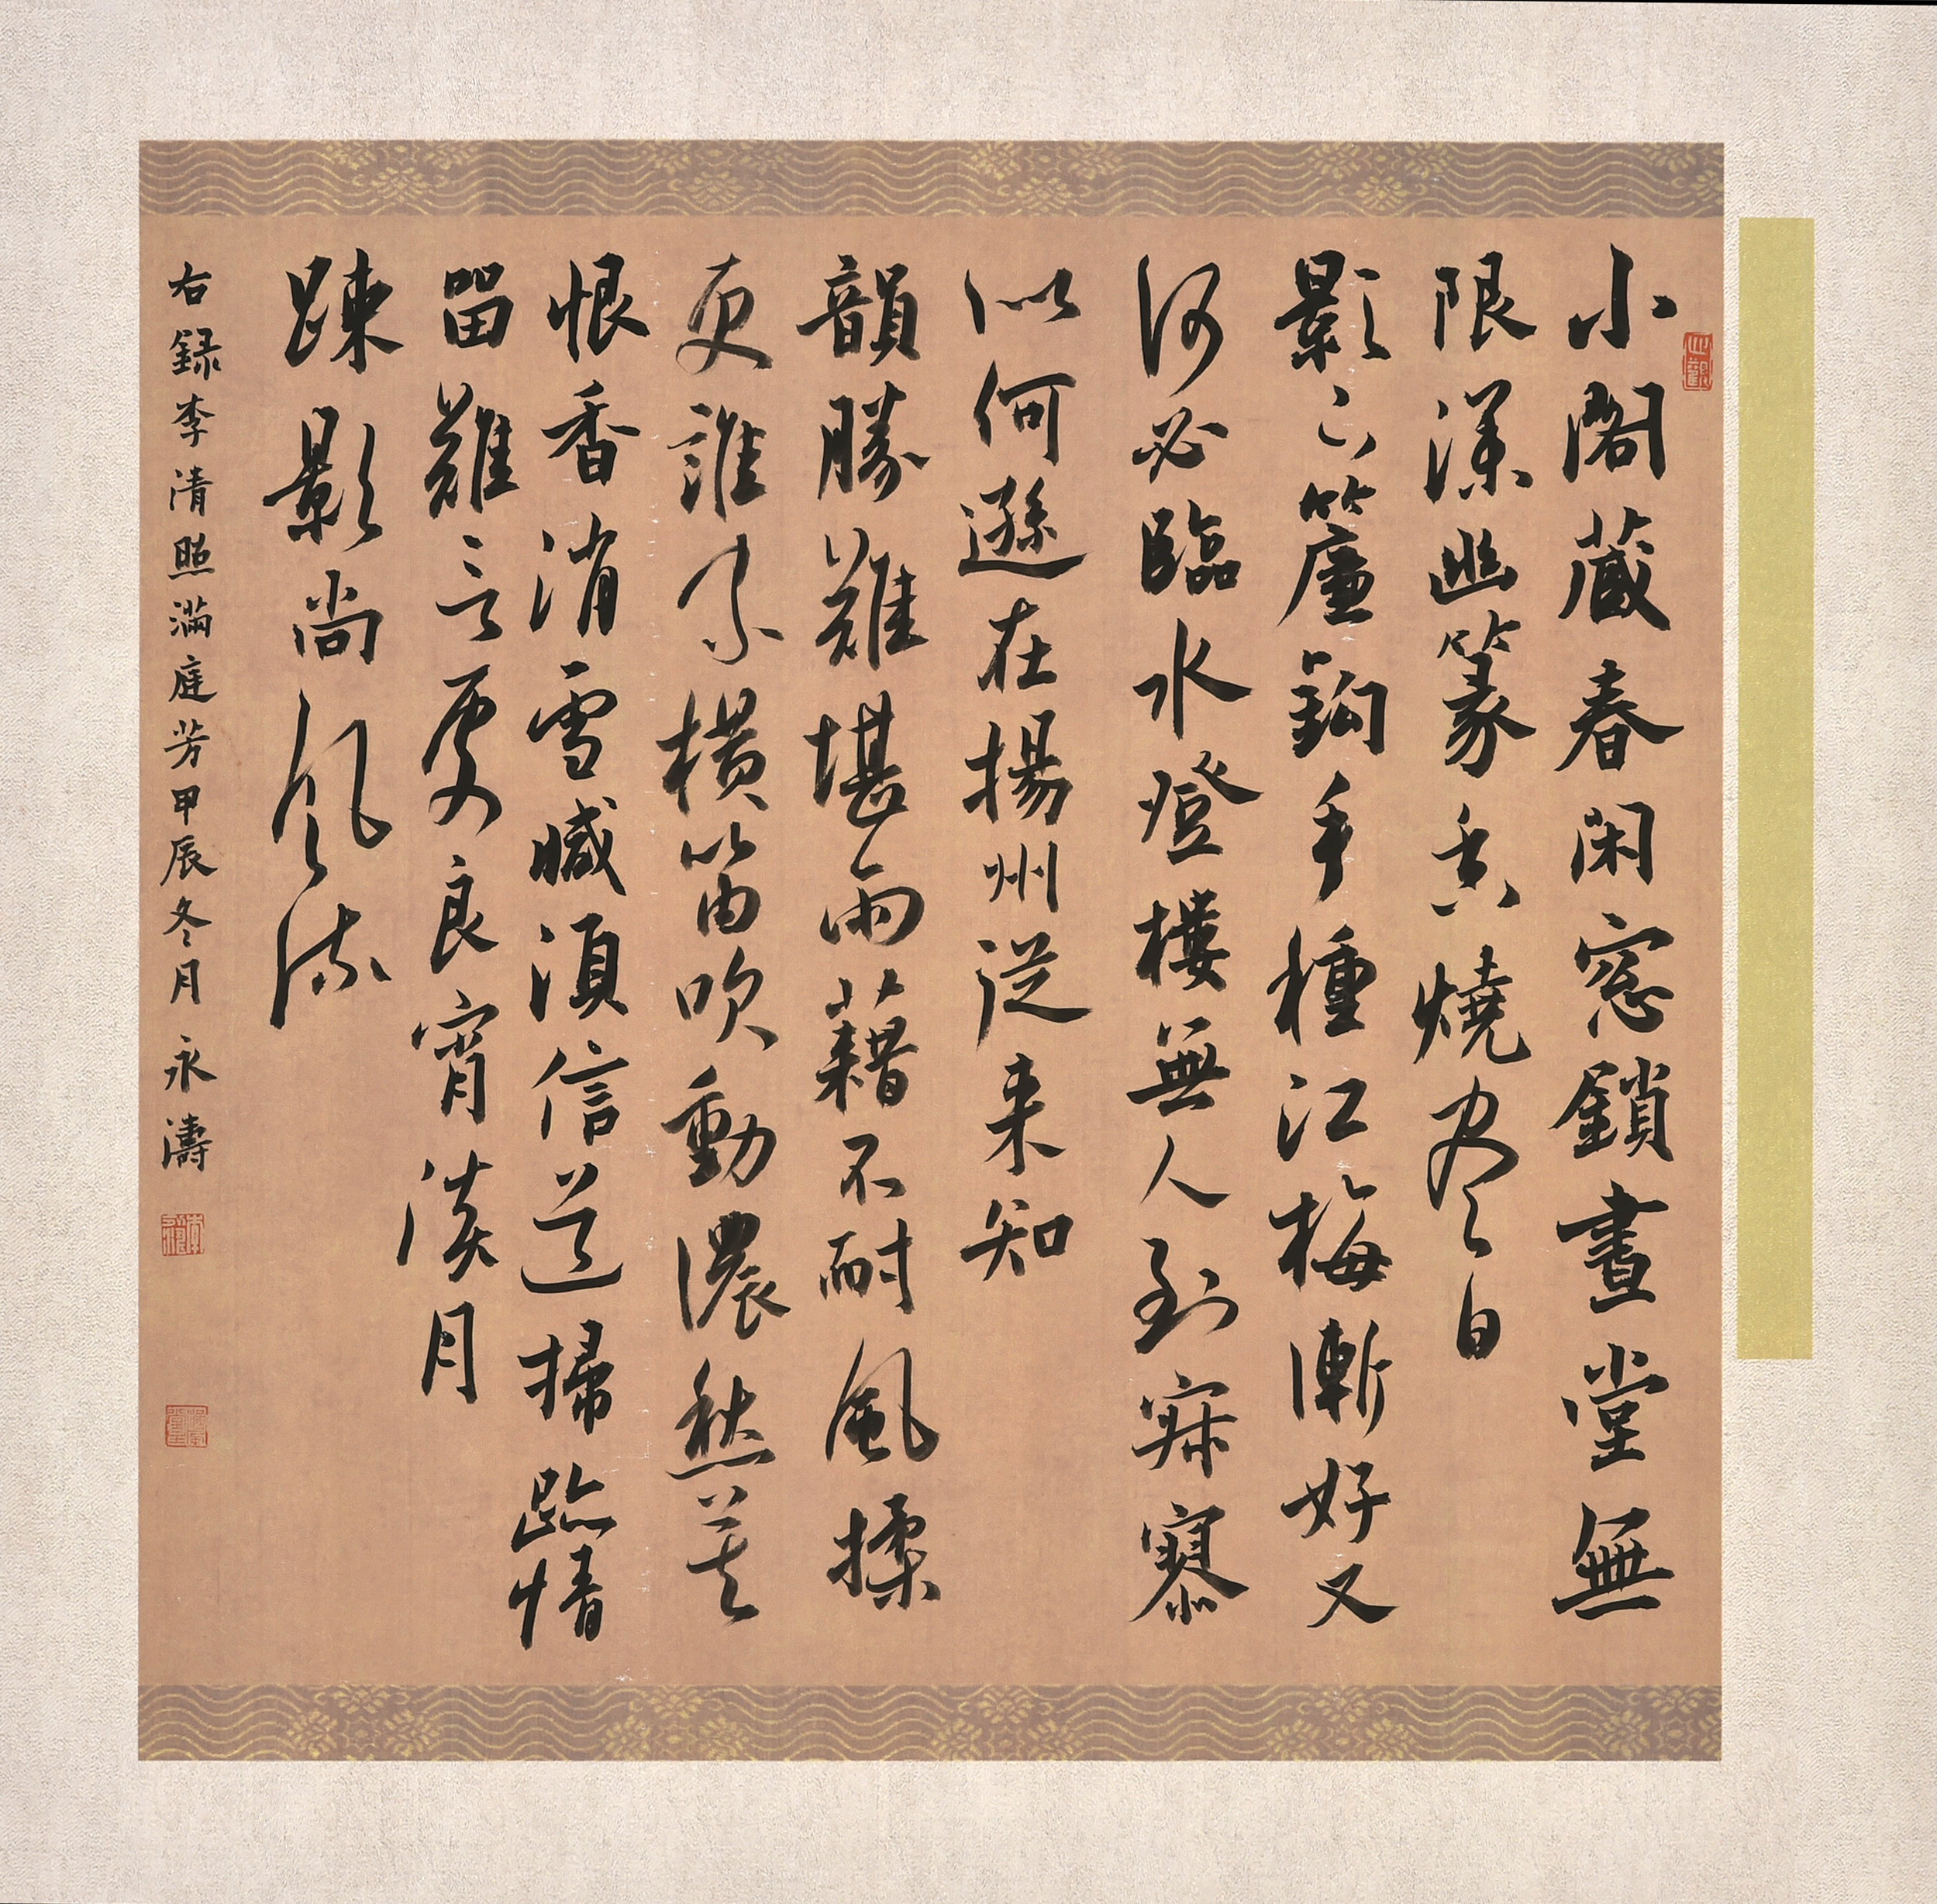 小閣藏春閑窓鎖晝堂無
限深幽篆香燒尽日
影下簾鈎手種江梅漸好又
何必臨水登樓無人到寂寥
似何遜在揚州従来知
韻勝難堪雨藉不耐風揉
更誰家橫笛吹動濃愁莫
恨香消雪減須信道掃跡情
留難言處良宵淡月
踈影尚風流
右録李清照滿庭芳甲辰冬月永濤